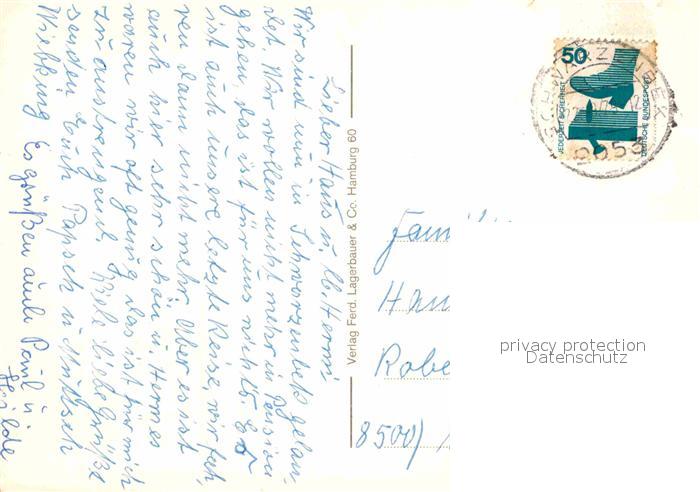 Lieber Hans u. lb. Hermi,
Wir sind nun in Schwarzenbek gelan-
det. Wir wollen nicht mehr in Pension
gehen das ist für uns nichts. Es
ist auch unsere letzte Reise, wir fah-
ren dann nicht mehr. Aber es ist
auch hier sehr schön u. Hermes
waren wir oft genug das ist für mich
zu anstrengend. Viele liebe Grüße
senden Euch Papsch u Muttsch
Wiebking Es grüßen auch Paul u.
Hilde
Verlag Ferd. Lagerbauer & Co. Hamburg 60
50
JEDERZEIT SICHERHEIT
DEUTSCHE BUNDESPOST
2053
Fam
Han
Robe
8500/
privacy protection
Datenschutz